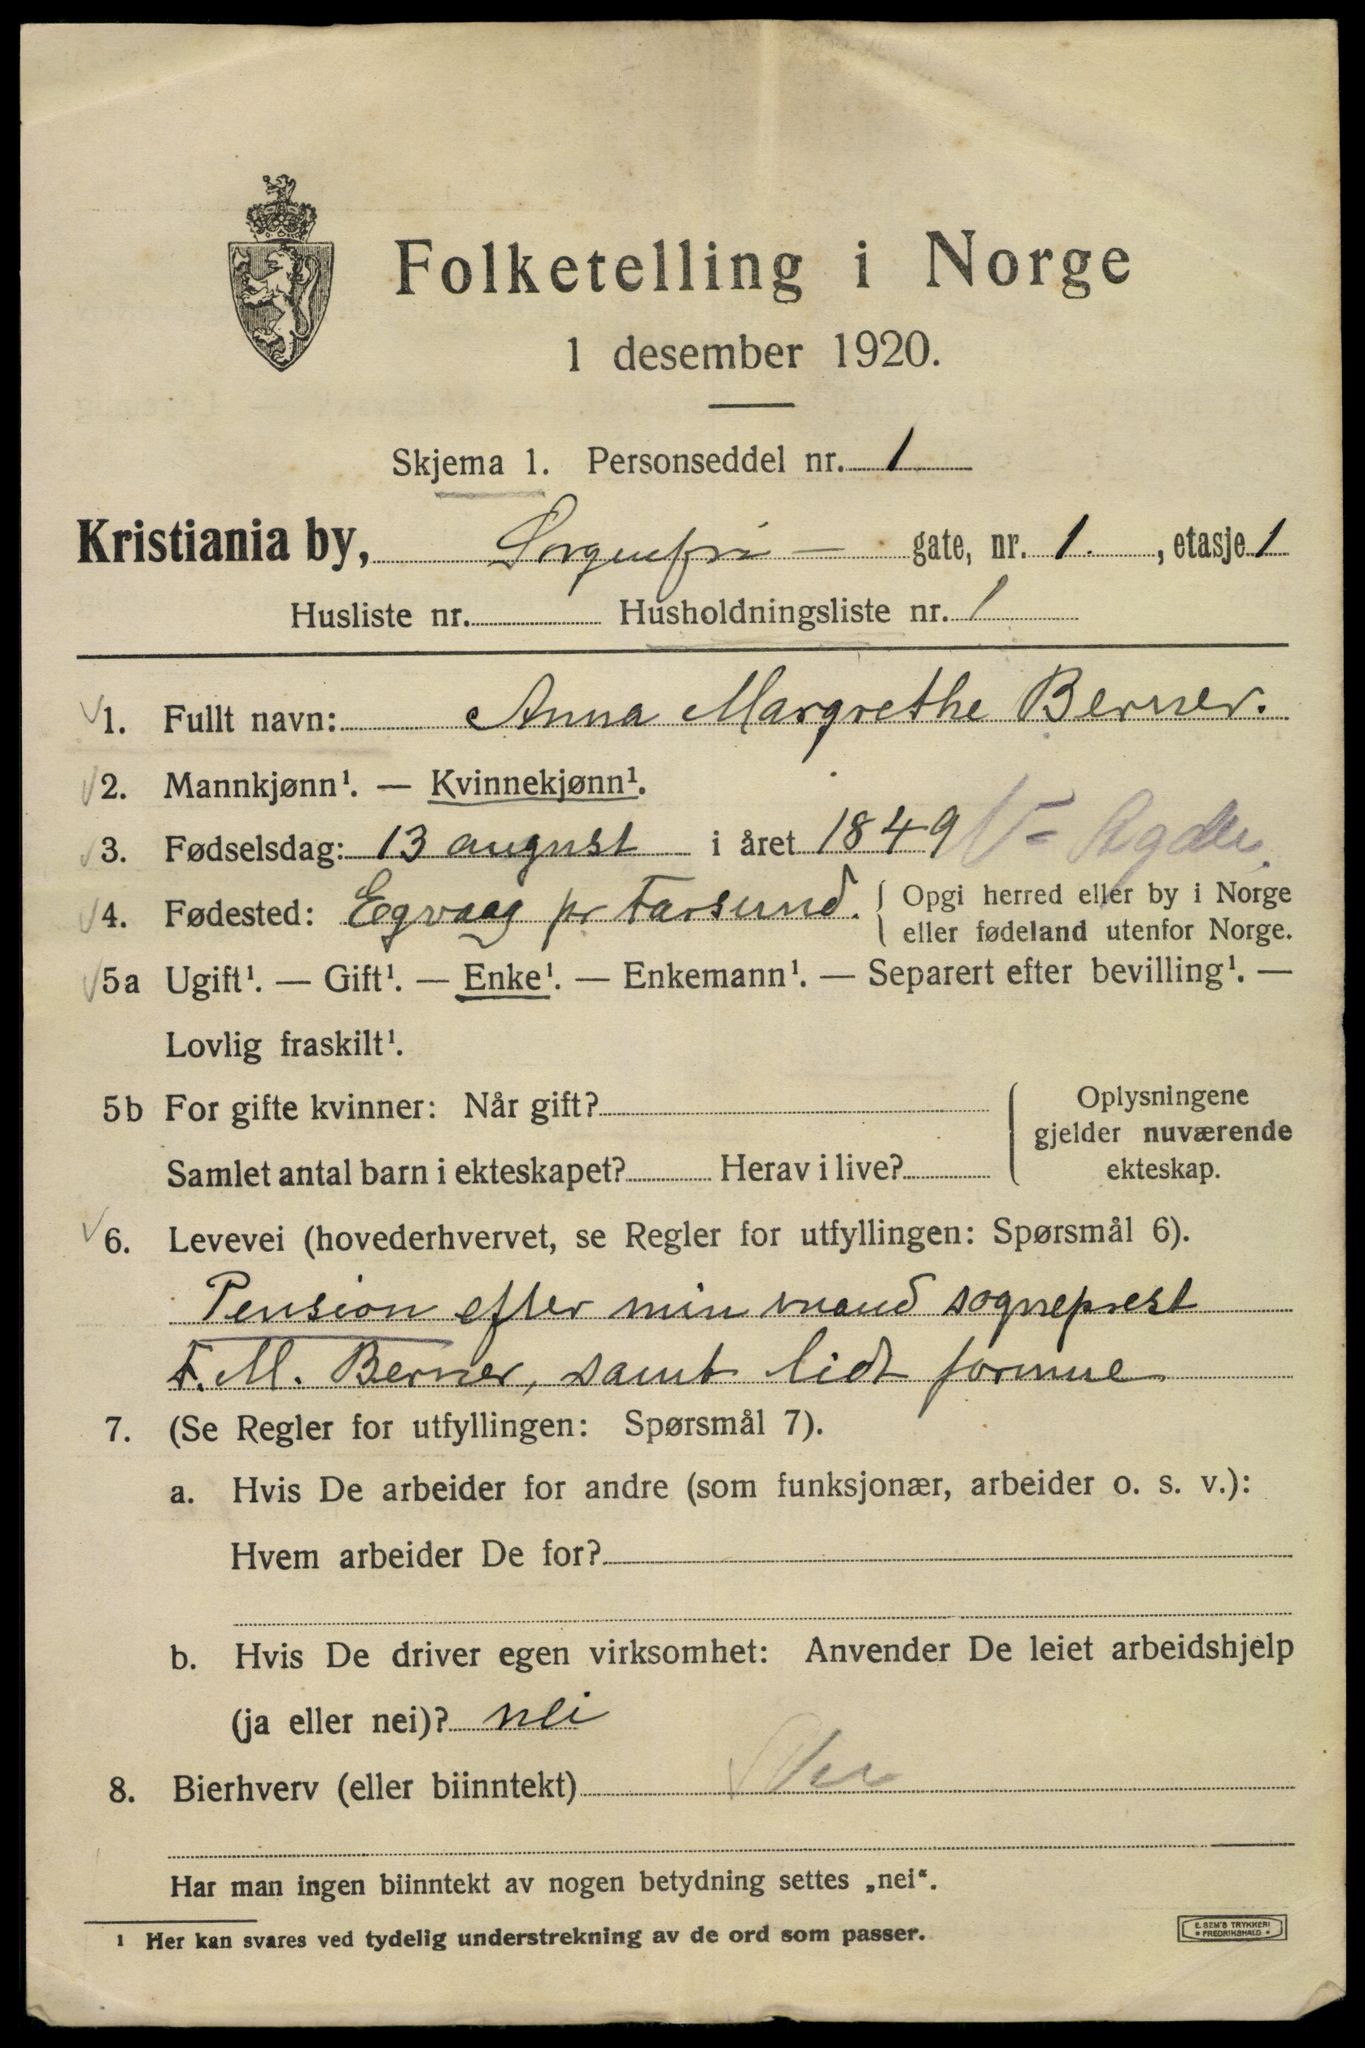 Folketelling i Norge
1 desember 1920.
Skjema 1. Personseddel nr. 1
Kristiania by, Sorgenfri - gate, nr. 1. , etasje 1
Husliste nr. Husholdningsliste nr. 1
1. Fullt navn: Anna Margrethe Berner.
2. Mannkjønn¹. — Kvinnekjønn¹.
3. Fødselsdag: 13 august i året 1849 V- Agder.
4. Fødested: Egvaag pr Farsund. Opgi herred eller by i Norge
eller fødeland utenfor Norge.
5a Ugift¹. — Gift¹. — Enke¹. — Enkemann¹. — Separert efter bevilling¹. —
Lovlig fraskilt¹.
5b For gifte kvinner: Når gift?
Samlet antal barn i ekteskapet? Herav i live?
Oplysningene
gjelder nuværende
ekteskap.
6. Levevei (hovederhvervet, se Regler for utfyllingen: Spørsmål 6).
Pension efter min mand sogneprest
F. M. Berner, samt lidt formue
7. (Se Regler for utfyllingen: Spørsmål 7).
a. Hvis De arbeider for andre (som funksjonær, arbeider o. s. v.):
Hvem arbeider De for?
b. Hvis De driver egen virksomhet: Anvender De leiet arbeidshjelp
(ja eller nei)? nei
8. Bierhverv (eller biinntekt)
Har man ingen biinntekt av nogen betydning settes „nei“.
¹ Her kan svares ved tydelig understrekning av de ord som passer.
E. SEM'S TRYKKERI
FREDRIKSHALD